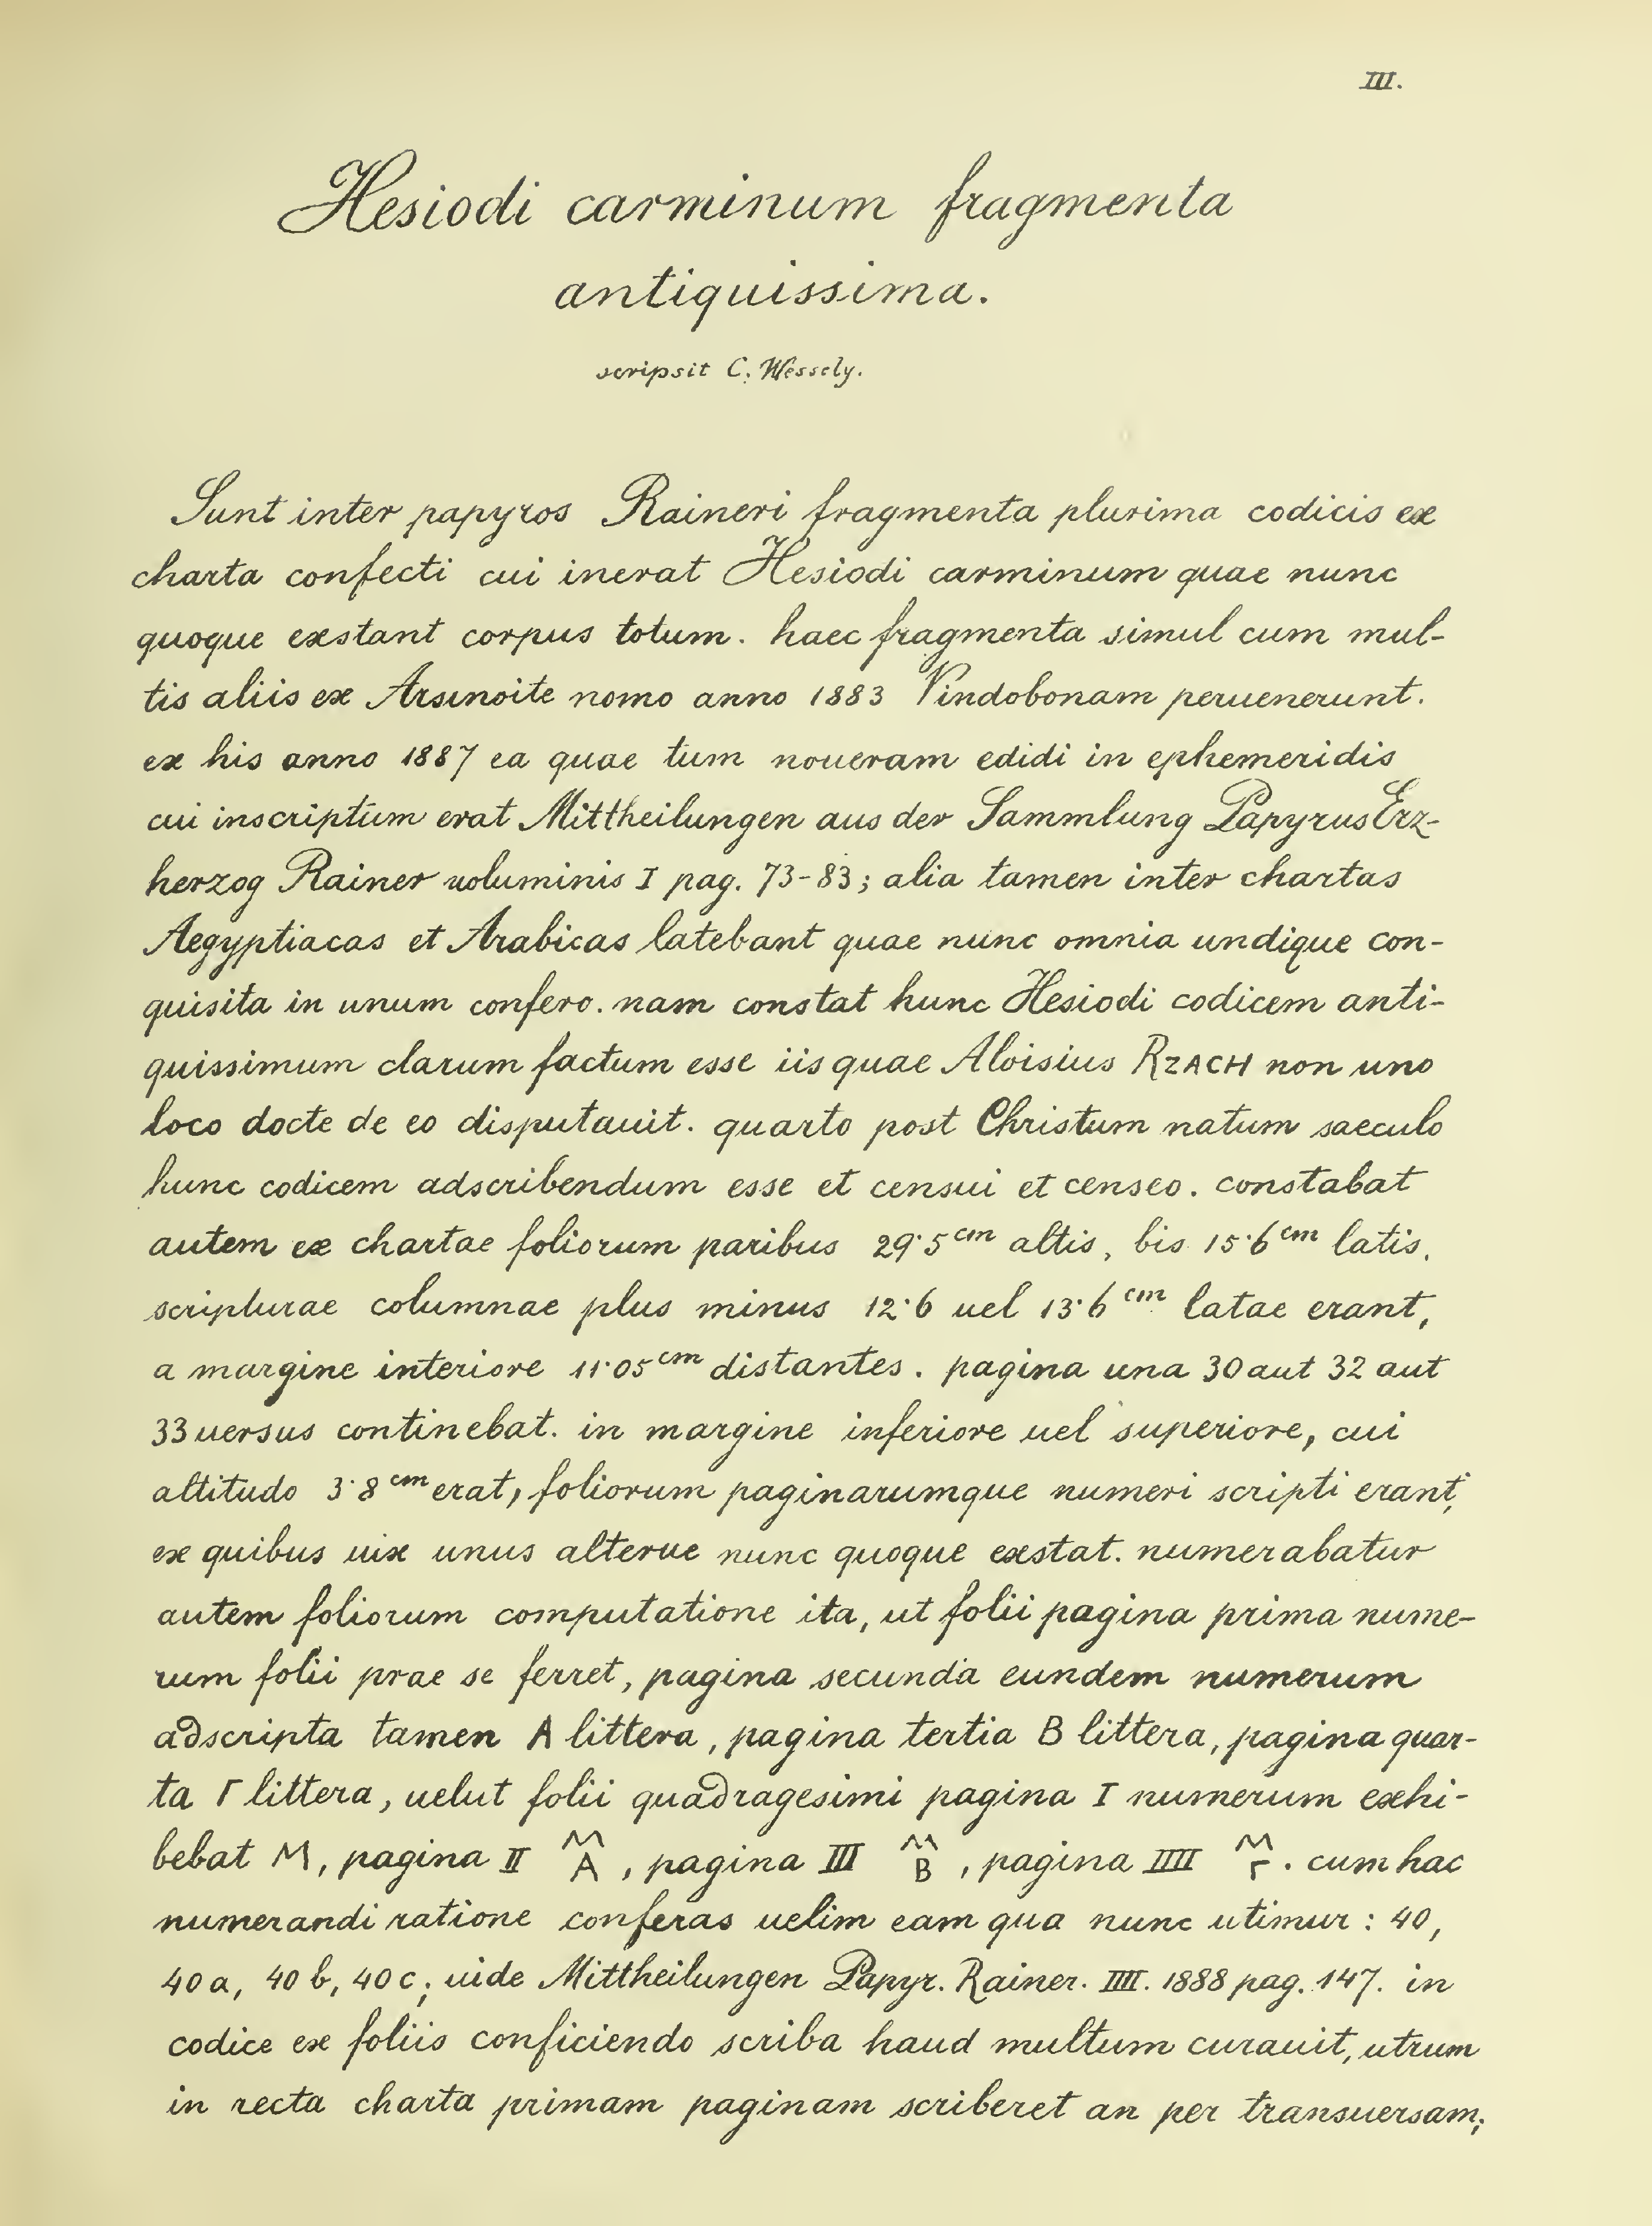 III.
Hesiodi carminum fragmenta
antiquissima.
scripsit C. Wessely.
Sunt inter papyros Raineri fragmenta plurima codicis ex
charta confecti cui inerat Hesiodi carminum quae nunc
quoque exstant corpus totum. haec fragmenta simul cum mul-
tis aliis ex Arsinoite nomo anno 1883 Vindobonam peruenerunt.
ex his anno 1887 ea quae tum noueram edidi in ephemeridis
cui inscriptum erat Mittheilungen aus der Sammlung Papyrus Erz-
herzog Rainer uoluminis I pag. 73-83; alia tamen inter chartas
Aegyptiacas et Arabicas latebant quae nunc omnia undique con-
quisita in unum confero. nam constat hunc Hesiodi codicem anti-
quissimum clarum factum esse iis quae Aloisius RZACH non uno
loco docte de eo disputauit. quarto post Christum natum saeculo
hunc codicem adscribendum esse et censui et censeo. constabat
autem ex chartae foliorum paribus 29·5 cm altis, bis 15·6 cm latis.
scripturae columnae plus minus 12·6 uel 13·6 cm latae erant,
a margine interiore 11·05 cm distantes. pagina una 30 aut 32 aut
33 uersus continebat. in margine inferiore uel superiore, cui
altitudo 3·8 cm erat, foliorum paginarumque numeri scripti erant,
ex quibus uix unus alterue nunc quoque exstat. numerabatur
autem foliorum computatione ita, ut folii pagina prima nume-
rum folii prae se ferret, pagina secunda eundem numerum
adscripta tamen A littera, pagina tertia B littera, pagina quar-
ta Γ littera, uelut folii quadragesimi pagina I numerum exhi-
bebat M, pagina II M A, pagina III M B, pagina IIII M Γ. cum hac
numerandi ratione conferas uelim eam qua nunc utimur: 40,
40 a, 40 b, 40 c; uide Mittheilungen Papyr. Rainer. IIII. 1888 pag. 147. in
codice ex foliis conficiendo scriba haud multum curauit, utrum
in recta charta primam paginam scriberet an per transuersam;